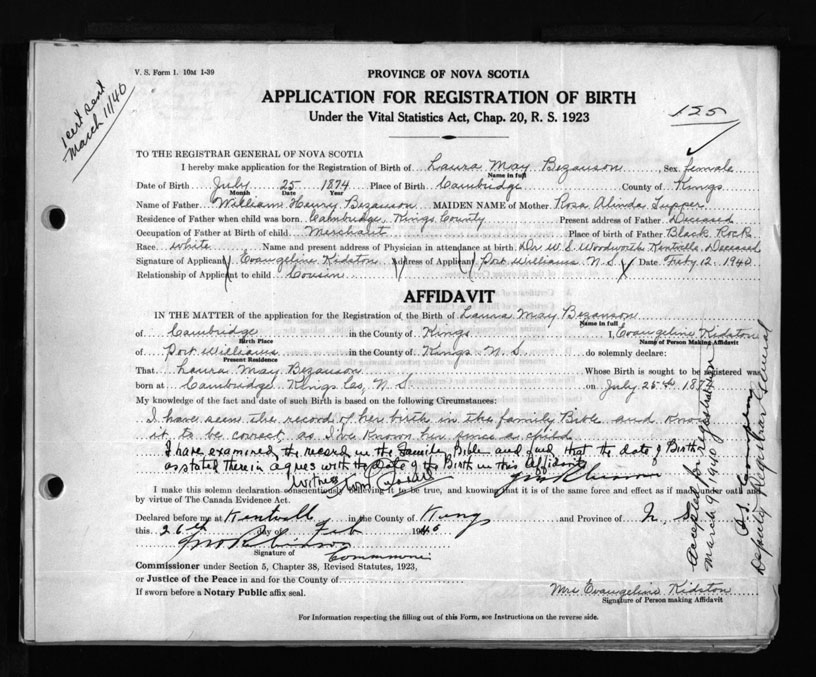 V. S. Form 1. 10M 1-39
1 cert sent
March 11/40
PROVINCE OF NOVA SCOTIA
APPLICATION FOR REGISTRATION OF BIRTH
Under the Vital Statistics Act, Chap. 20, R. S. 1923
125
TO THE REGISTRAR GENERAL OF NOVA SCOTIA
I hereby make application for the Registration of Birth of Laura May Bezanson, Sex female
Name in full
Date of Birth July 25 1874 Place of Birth Cambridge County of Kings
Month Date Year
Name of Father William Henry Bezanson MAIDEN NAME of Mother Rosa Alinda Tupper
Residence of Father when child was born Cambridge, Kings County Present address of Father Deceased
Occupation of Father at Birth of child Merchant Place of birth of Father Black Rock
Race white Name and present address of Physician in attendance at birth Dr W. S. Woodworth Kentville Deceased
Signature of Applicant Evangeline Kidston Address of Applicant Port Williams N. S. Date Feby 12. 1940
Relationship of Applicant to child Cousin
AFFIDAVIT
IN THE MATTER of the application for the Registration of the Birth of Laura May Bezanson
Name in full
of Cambridge in the County of Kings I, Evangeline Kidston
Birth Place Name of Person Making Affidavit
of Port Williams in the County of Kings N. S. do solemnly declare:
Present Residence
That Laura May Bezanson Whose Birth is sought to be registered was
born at Cambridge Kings Co, N. S. on July 25th 1874
My knowledge of the fact and date of such Birth is based on the following Circumstances:
I have seen the record of her birth in the family Bible and know
it to be correct as I've known her since a child
I have examined the record in the Family Bible and find that the date of Birth
as stated therein agrees with the date of the Birth in this Affidavit
Witness
I make this solemn declaration conscientiously believing it to be true, and knowing that it is of the same force and effect as if made under oath and
by virtue of The Canada Evidence Act.
Declared before me at Kentville in the County of Kings and Province of N. S.
this 26th day of Feb 1940
Signature of
Commissioner under Section 5, Chapter 38, Revised Statutes, 1923,
or Justice of the Peace in and for the County of
If sworn before a Notary Public affix seal.
Mrs Evangeline Kidston
Signature of Person making Affidavit
For Information respecting the filling out of this Form, see Instructions on the reverse side.
Accepted for registration
March 1940
Deputy Registrar General